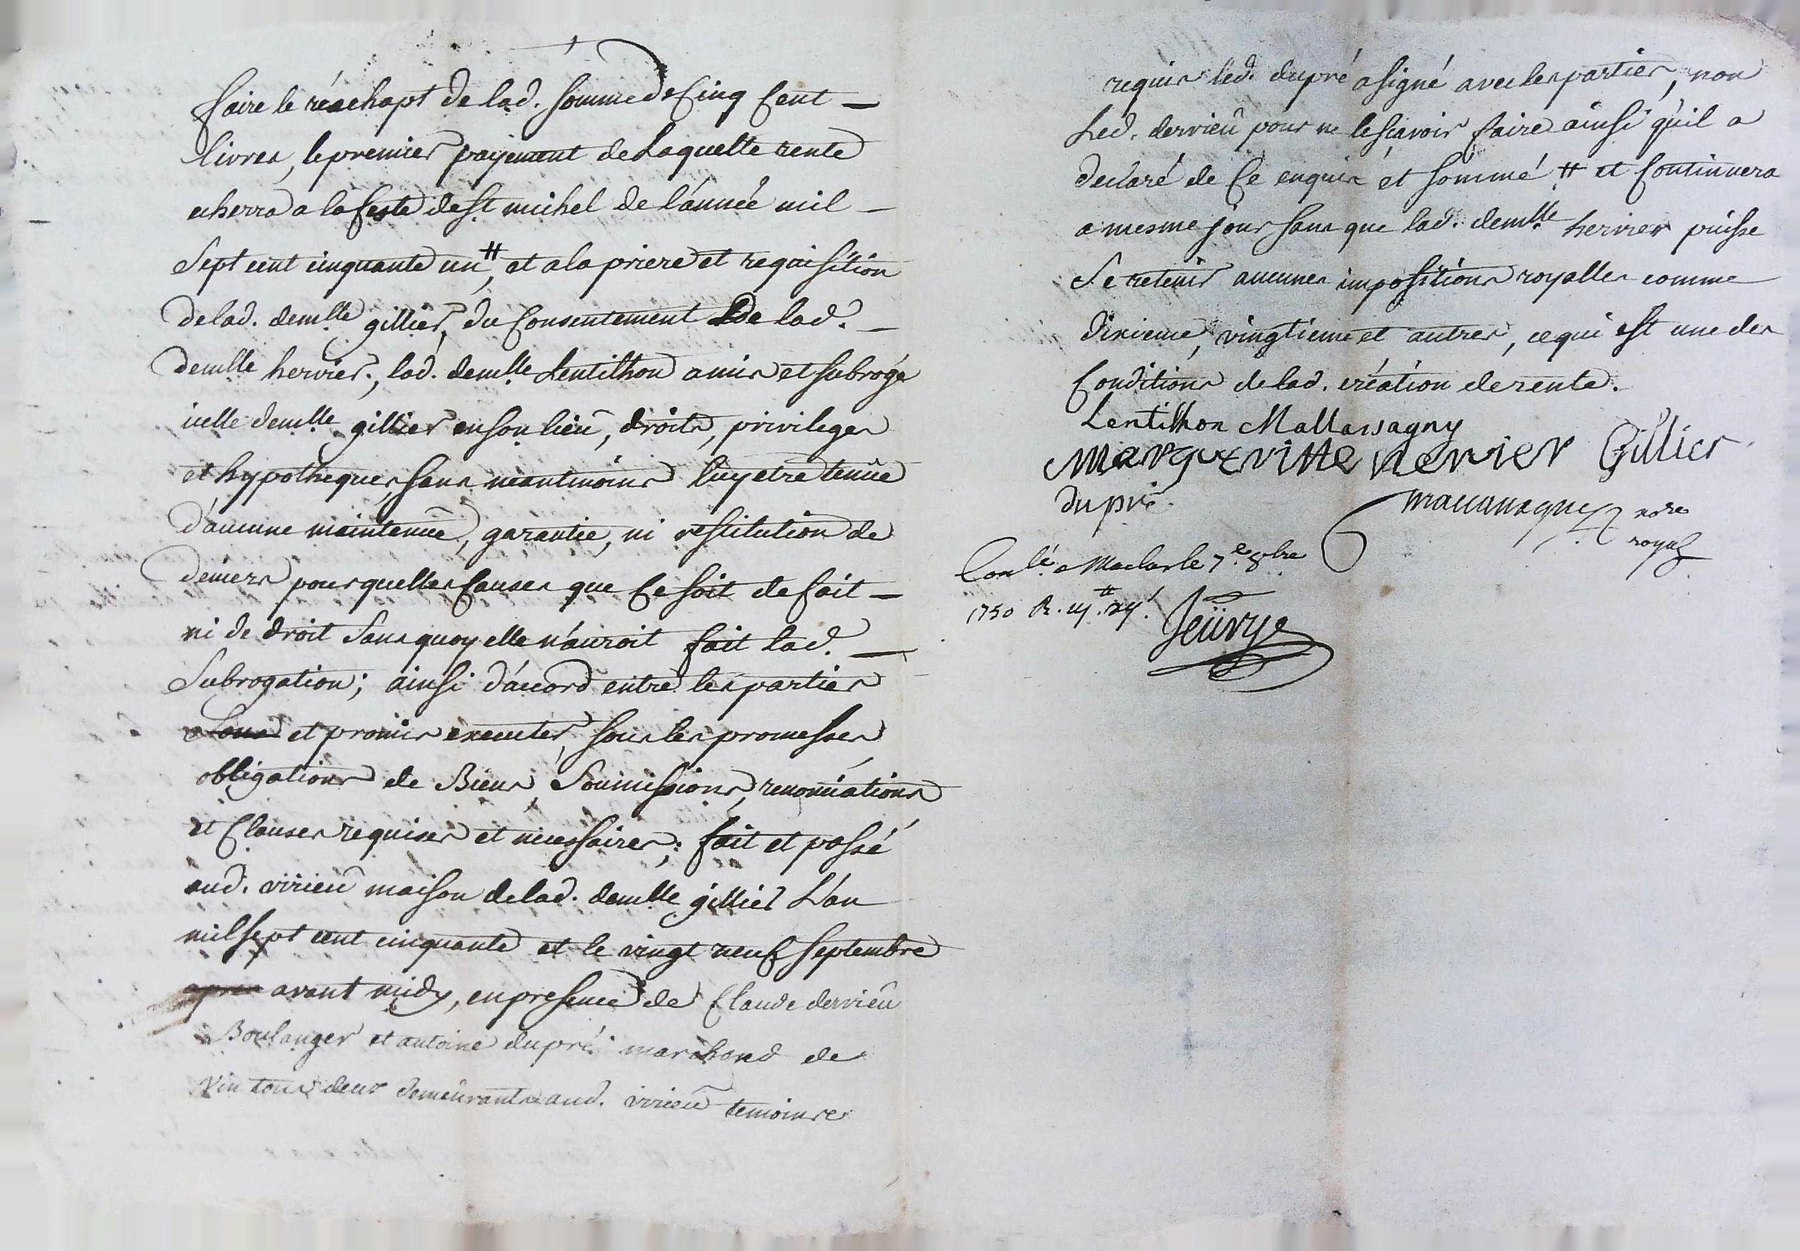 faire le réachapt de lad. somme de Cinq Cent
livres, le premier payement de Laquelle rente
echerra a la feste de st michel de l'année mil
Sept cent cinquante un ⧺, et a la priere et requisition
de lad. demlle gillier, du Consentement de lad.
demlle hervier, lad. demlle Lentilhon a mis et subrogé
icelle demlle gillier en son lieu, droits, privileges
et hypotheques, sans neantmoins luy etre tenüe
d'aucune maintenüe, garantie, ni restitution de
deniers pour quelles Causes que Ce soit de fait
ni de droit Sans quoy elle n'auroit fait lad.
Subrogation; ainsi d'accord entre les parties
et promis executer, sous les promesses,
obligations de Biens, Soumissions, renonciations
et Clauses requises et necessaires; fait et passé
aud. virieu maison de lad. demlle gillier L'an
mil sept cent cinquante et le vingt neuf septembre
apres avant midy, en presence de Claude dervieu
Boulanger et antoine dupré marchand de
vin tous deux demeurants aud. virieu temoins
requis led. dupré a signé avec les parties, non
Led. dervieu pour ne le sçavoir faire ainsi qu'il a
declaré de Ce enquis et sommé ⧺ et Continuera
a mesme jour sans que lad. demlle hervier puisse
Se retenir aucunes impositions royalles comme
dixieme, vingtieme et autres, ce qui est une des
Conditions de lad. création de rente.
Lentilhon Mallassagny
Margueritte hervier Gillier
dupré
nore
royal
Conlé a Maclas le 7e 8bre
1750 R.